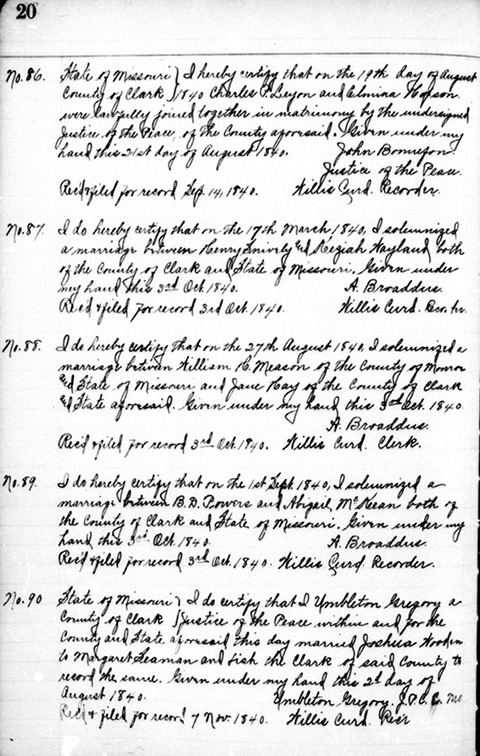 20
No. 86. State of Missouri } I hereby certify that on the 19th day of August
County of Clark } 1840 Charles P. Lyon and Elmina Hopson
were lawfully joined together in matrimony by the undersigned
Justice of the Peace, of the County aforesaid. Given under my
hand this 21st day of August 1840. John Bonnefon.
Justice of the Peace.
Rec'd & filed for record Sep. 14, 1840. Willis Curd. Recorder.
No. 87. I do hereby certify that on the 17th March 1840, I solemnized
a marriage between Henry Snively and Keziah Wayland both
of the County of Clark and State of Missouri. Given under
my hand this 3rd Oct. 1840. A. Broaddus.
Rec'd & filed for record 3rd Oct. 1840. Willis Curd. Recorder.
No. 88. I do hereby certify that on the 27th August 1840, I solemnized a
marriage between William H. Meason of the County of Monroe
and State of Missouri and Jane Hay of the County of Clark
and State aforesaid. Given under my hand this 3rd Oct. 1840.
A. Broaddus.
Rec'd & filed for record 3rd Oct. 1840. Willis Curd. Clerk.
No. 89. I do hereby certify that on the 1st Sept. 1840, I solemnized a
marriage between B. D. Powers and Abigail McKean both of
the County of Clark and State of Missouri. Given under my
hand this 3rd Oct. 1840. A. Broaddus.
Rec'd & filed for record 3rd Oct. 1840. Willis Curd Recorder.
No. 90 State of Missouri } I do certify that I Umbleton Gregory a
County of Clark } Justice of the Peace within and for the
County and State aforesaid this day married Joshua Wooden
to Margaret Leaman and wish the Clark of said County to
record the same. Given under my hand this 2d day of
August 1840. Umbleton Gregory. J.P.C.C. Mo
Rec'd & filed for record 7 Nov. 1840. Willis Curd. Rec'r